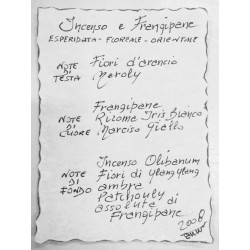 Incenso e Frangipane
ESPERIDATA - FLOREALE - ORIENTALE
NOTE DI TESTA
Fiori d'arancio
Neroly
NOTE DI CUORE
Frangipane
Rizome Iris Bianco
Narciso Giallo
NOTE DI FONDO
Incenso Olibanum
Fiori di Ylang Ylang
ambra
Patchouly
assoluta di
Frangipane
2006